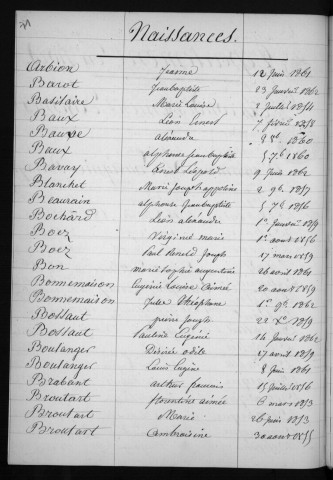 Naissances.
Arbion Jeanne 12 Juin 1861
Barot Jeanbaptiste 23 Janvier 1862
Basilaire Marie Louise 2 Juillet 1854
Baux Léon Ernest 7 février 1858
Bauve alexandre 1860
Baux alphonse Jeanbaptiste 5 7bre 1860
Bavay Ernest Léopold 9 Juin 1862
Blanchet Marie Joseph 2 9bre 1857
Beaurain alphonse Jeanbaptiste 5 7bre 1856
Bochard Léon alexandre 1er Janvier 1859
Boez Virginie marie 1er aout 1856
Boez Paul Joseph 17 mars 1859
Bon marie Sophie augustine 26 avril 1861
Bonnemaison Eugénie Louise Aimée 20 aout 1859
Bonnemaison Jules Stéphane 1er 9bre 1862
Bossaut pierre Joseph 22 Xbre 1859
Bossaut Pauline Eugénie 14 Janvier 1862
Boulanger Désirée odile 17 avril 1859
Boulanger Louis Eugène 8 Juin 1861
Brabant arthur francois 15 Juillet 1856
Broutart aimée 6 mars 1853
Broutart Marie 26 Juin 1853
Broutart ambroisine 30 aout 1855